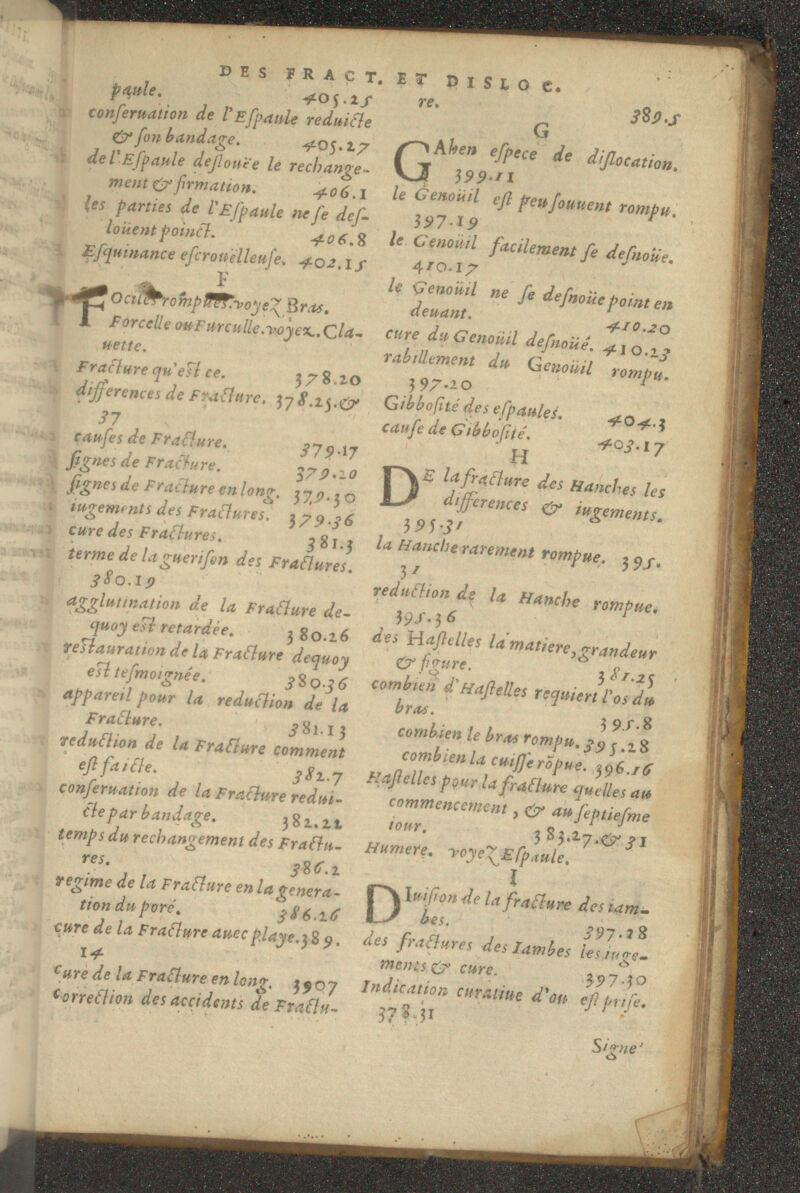 DES FRACT. ET DISLOC.
paule. 405.25
conseruation de l'Espaule reduicte
& son bandage. 405.27
de l'Espaule deslouëe le rechange-
ment & firmation. 406.1
les parties de l'Espaule ne se des-
louent poinct. 406.8
Esquinance escrouëlleuse. 402.15
F
Focile rompu voyez Bras.
Forcelle ou Furculle. voyez. Cla-
uette.
Fracture qu'est ce. 378.20
differences de Fracture. 378.25.&
37
causes de Fracture. 379.17
signes de Fracture. 379.20
signes de Fracture en long. 379.30
iugements des Fractures. 379.36
cure des Fractures. 381.3
terme de la guerison des Fractures.
380.19
agglutination de la Fracture de-
quoy est retardée. 380.26
restauration de la Fracture dequoy
est tesmoignée. 380.36
appareil pour la reduction de la
Fracture. 381.13
reduction de la Fracture comment
est faicte. 382.7
conseruation de la Fracture redui-
cte par bandage. 382.22
temps du rechangement des Fractu-
res. 386.2
regime de la Fracture en la genera-
tion du poré. 386.26
cure de la Fracture auec playe. 389.
14
Cure de la Fracture en long. 3907
Correction des accidents de Fractu-
re. 389.5
G
GAhen espece de dislocation.
399.11
le Genoüil est peu souuent rompu.
397.19
le Genoüil facilement se desnoüe.
410.17
le Genoüil ne se desnoüe point en
deuant. 410.20
cure du Genoüil desnoüé. 410.23
rabillement du Genoüil rompu.
397.20
Gibbosité des espaules. 404.3
cause de Gibbosité. 403.17
H
DE la fracture des Hanches les
differences & iugements.
395.31
la Hanche rarement rompue. 395.
31
reduction de la Hanche rompue.
395.36
des Hastelles la matiere, grandeur
& figure. 381.25
combien d'Hastelles requiert l'os du
bras. 395.8
combien le bras rompu. 395.28
combien la cuisse rõpue. 396.16
Hastelles pour la fracture quelles au
commencement, & au septiesme
iour. 383.27.& 31
Humere. voyez Espaule.
I
DIuision de la fracture des iam-
bes. 397.28
des fractures des Iambes les iuge-
ments & cure. 397.30
Indication curatiue d'ou est prise.
378.31
Signe